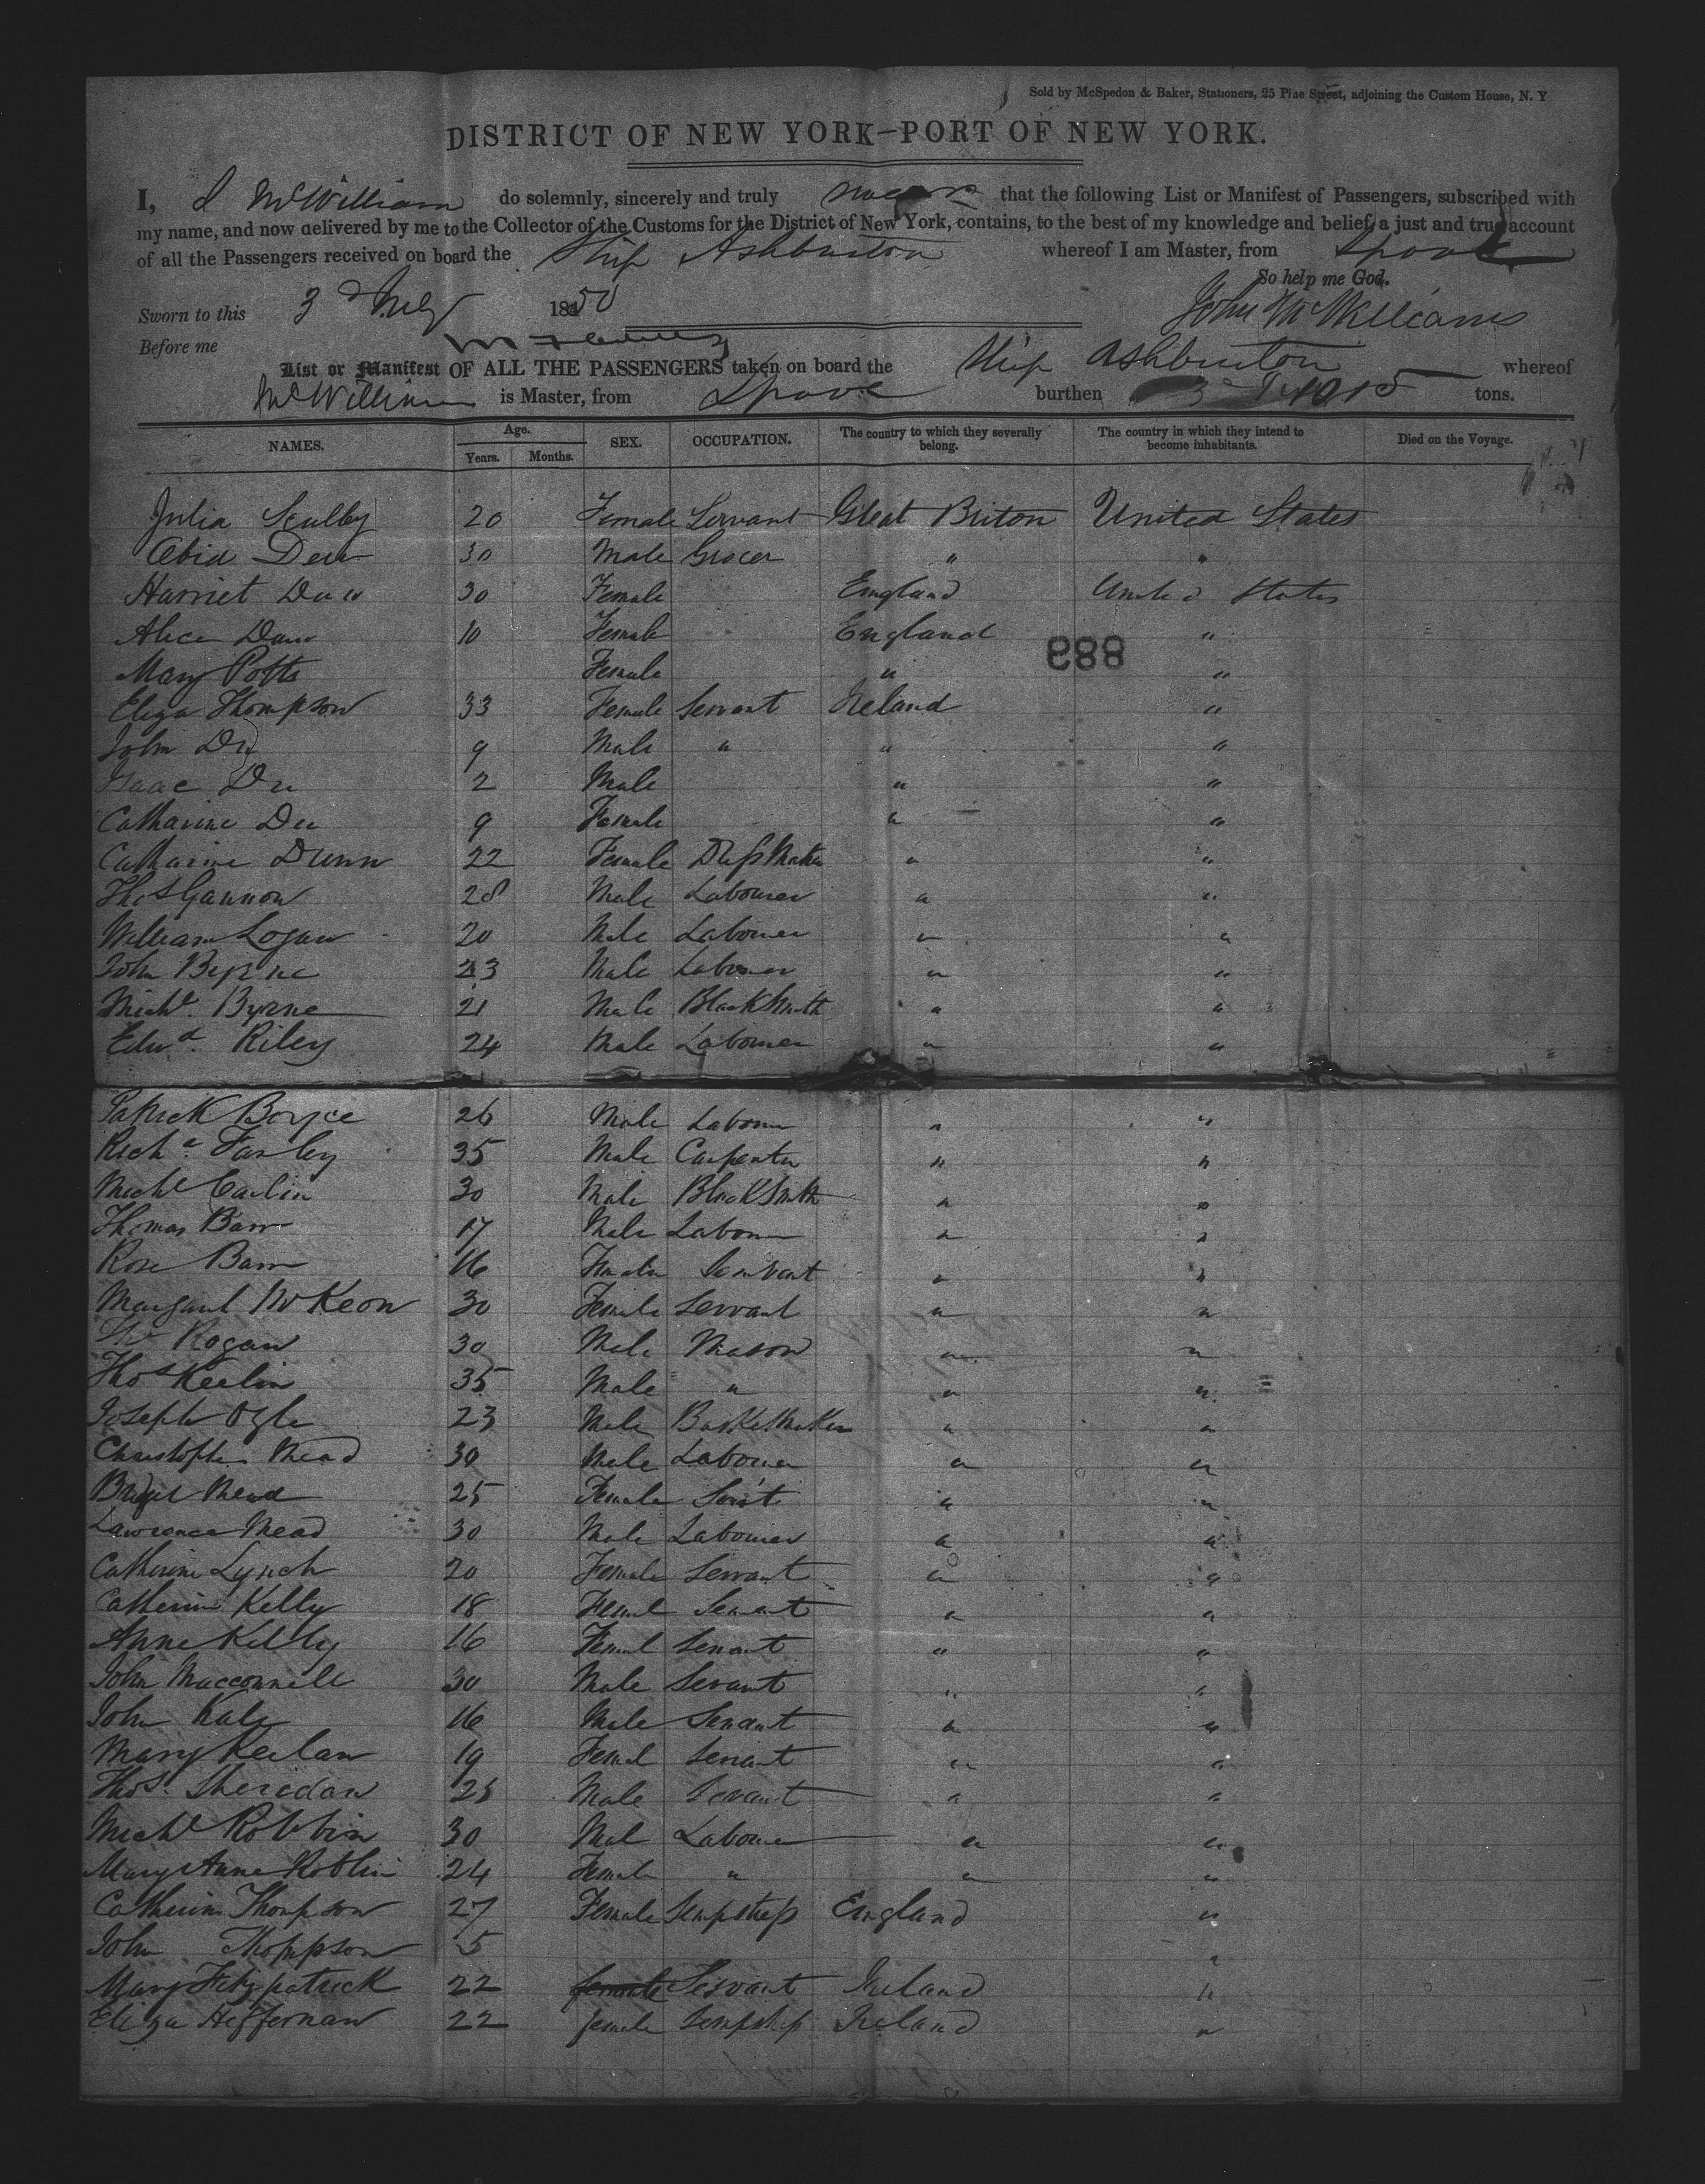 Sold by McSpedon & Baker, Stationers, 25 Pine Street, adjoining the Custom House, N. Y
DISTRICT OF NEW YORK—PORT OF NEW YORK.
I, J McWilliam do solemnly, sincerely and truly swear that the following List or Manifest of Passengers, subscribed with
my name, and now delivered by me to the Collector of the Customs for the District of New York, contains, to the best of my knowledge and belief, a just and true account
of all the Passengers received on board the Ship Ashburton whereof I am Master, from Lpool
So help me God.
Sworn to this 3d July 1850 John McWilliams
Before me
List or Manifest OF ALL THE PASSENGERS taken on board the Ship Ashburton whereof
McWilliam is Master, from Lpool burthen 1015 tons.
NAMES. Age. Years. Months. SEX. OCCUPATION. The country to which they severally belong. The country in which they intend to become inhabitants. Died on the Voyage.
Julia Scully 20 Female Servant Great Briton United States
Abia Dew 30 Male Grocer " "
Harriet Daw 30 Female England United States
Alice Daw 10 Female England "
889
Mary Potts Female " "
Eliza Thompson 33 Female Servant Ireland "
John Do 9 Male " " "
Isaac Do 2 Male " "
Catharine Do 9 Female " "
Catharine Dunn 22 Female Dressmaker " "
Thos Gannon 28 Male Labourer " "
William Logan 20 Male Labourer " "
John Byrne 23 Male Labourer " "
Michl. Byrne 21 Male BlackSmith " "
Edwd. Riley 24 Male Labourer " "
Patrick Boyce 26 Male Labourer " "
Richd. Farley 35 Male Carpenter " "
Michl Carlin 30 Male BlackSmith " "
Thomas Barr 17 Male Labourer " "
Rose Barr 16 Female Servant " "
Margaret McKeon 30 Female Servant " "
Rogan 30 Male Mason " "
Thos Keelin 35 Male " " "
Joseph Ogle 23 Male BasketMaker " "
Christopher Mead 30 Male Labourer " "
Bridget Mead 25 Female Servt " "
Lawrence Mead 30 Male Labourer " "
Catherine Lynch 20 Female Servant " "
Catherine Kelly 18 Femal Servant " "
Anne Kelly 16 Femal Servant " "
John Macconnell 30 Male Servant " "
John Kale 16 Male Servant " "
Mary Keelan 19 Femal Servant " "
Thos. Sheridan 25 Male Servant " "
Michl Robbin 30 Mal Labourer " "
Mary Anne Roblin 24 Female " " "
Catherine Thompson 27 Female Sempstress England "
John Thompson 5 "
Mary Fitzpatrick 22 female Servant Ireland "
Eliza Heffernan 22 female Sempstress Ireland "